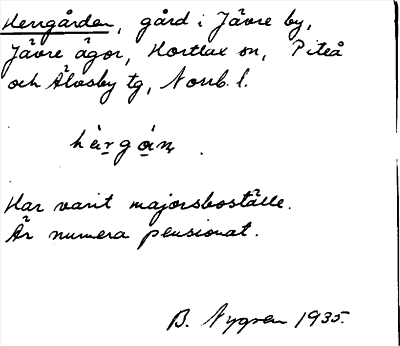 Herrgården, gård i Jävre by,
Jävre ägor, Hortlax sn, Piteå
och Älvsby tg, Norrb. l.
här̲gå̲n̥.
Har varit majorsboställe.
Är numera pensionat.
B. Nygren 1935.